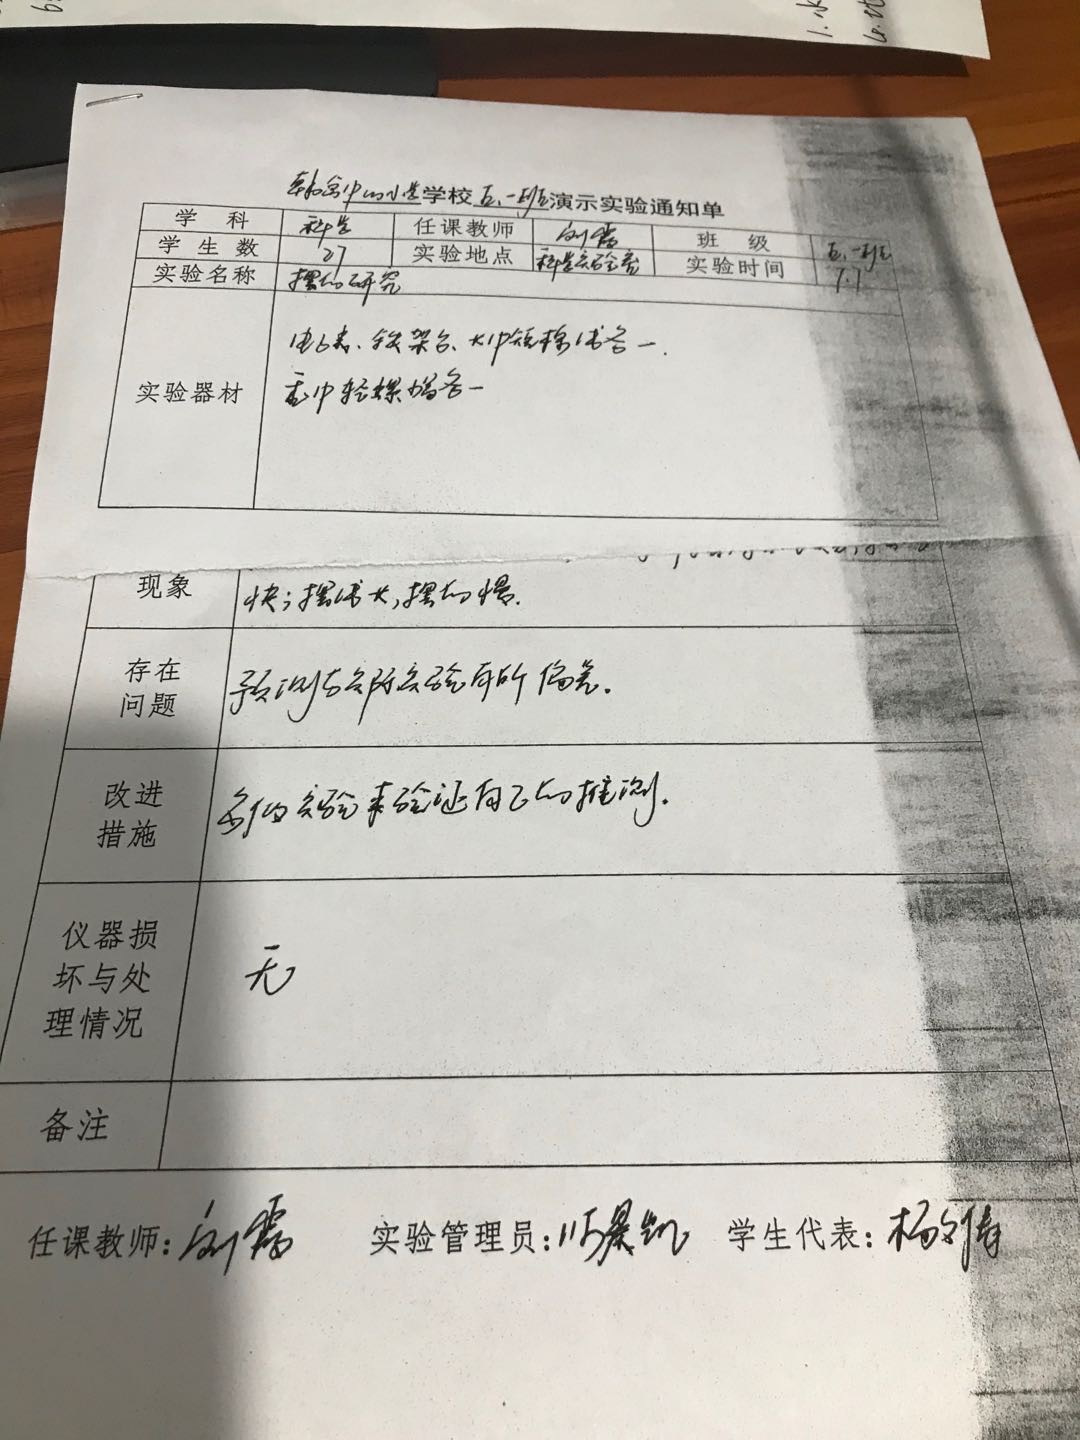 中心小学学校五.一班演示实验通知单
学科 科学 任课教师 刘霞 班级 五.一班
学生数 27 实验地点 科学实验室 实验时间 7.7
实验名称 摆的研究
实验器材
电子表、铁架台、大中短摆线各一.
重中轻螺帽各一
现象
快;摆长大,摆的慢.
存在问题
预测与实际实验有所偏差.
改进措施
多做实验来验证自己的推测.
仪器损坏与处理情况
无
备注
任课教师:刘霞 实验管理员: 学生代表:杨